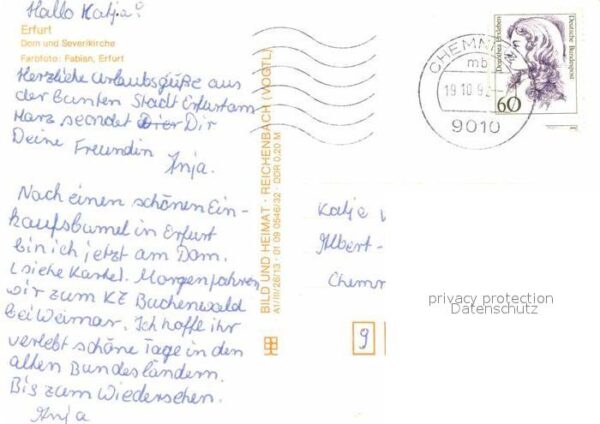 Hallo Katja!
Erfurt
Dom und Severikirche
Farbfoto: Fabian, Erfurt
Herzliche Urlaubsgrüße aus
der bunten Stadt Erfurt am
Harz sendet Dir
Deine Freundin
Anja.
Nach einen schönen Ein-
kaufsbumel in Erfurt
bin ich jetzt am Dom.
(siehe Karte). Morgen fahren
wir zum KZ Buchenwald
bei Weimar. Ich hoffe ihr
verlebt schöne Tage in den
alten Bundesländern.
Bis zum Wiedersehen.
Anja
BILD UND HEIMAT · REICHENBACH (VOGTL)
A1/III/26/13 · 01 09 0546/32 · DDR 0,20 M
CHEMNITZ
mb
19.10.9
9010
Dorothea Erxleben
Deutsche Bundespost
60
Katja
Albert-
Chemn
privacy protection
Datenschutz
9